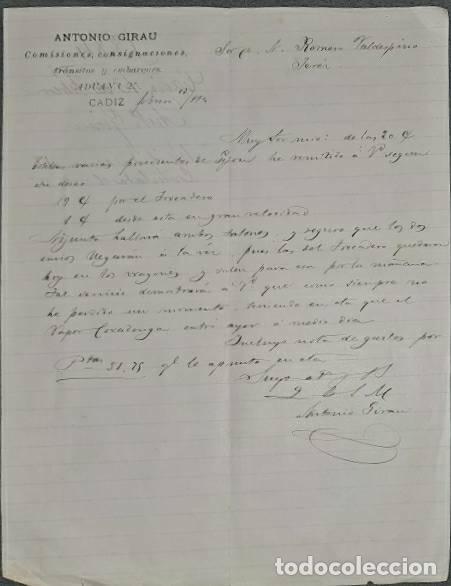 ANTONIO GIRAU
Comisiones, consignaciones,
tránsitos y embarques.
ADUANA 2
CADIZ
Romero Valdespino
Jerez
Muy Sor mio: de las 20
varias procedentes de Gijon he remitido á V. segun
deseo
19 por el Trocadero
1 desde esta en gran velocidad
Adjunto hallará ambos talones, y seguro que los dos
envios llegarán á la vez pues las del Trocadero quedaron
hoy en los wagones y salen para esa por la mañana
Tal servicio demostrará á V. que como siempre no
he perdido un momento, teniendo en cta que el
Vapor Covadonga entró ayer á medio dia
Incluyo nota de gastos por
Ptas 38,75 qe le apunto en cta
Suyo
Q B S M
Antonio Girau
todocoleccion.net